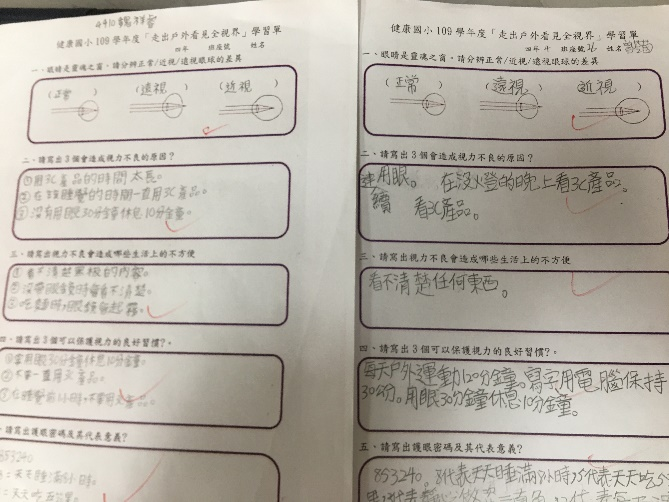 4410
健康國小109學年度「走出戶外看見全視界」學習單
四年 班座號 姓名
一、眼睛是靈魂之窗，請分辨正常/近視/遠視眼球的差異
(正常) (遠視) (近視)
二、請寫出3個會造成視力不良的原因？
①用3C產品的時間太長。
②在睡覺的時間一直用3C產品。
③沒有用眠30分鐘休息10分鐘。
三、請寫出視力不良會造成哪些生活上的不方便
①看不清楚黑板的內容。
②沒帶眼鏡時會看不清楚。
③吃麵時，眼鏡會起霧。
四、請寫出3個可以保護視力的良好習慣?。
①常用眼30分鐘休息10分鐘。
②不要一直用3C產品。
③在睡覺前1小時，不要用3C產品。
、請寫出護眼密碼及其代表意義?
853240
8：天天睡滿8小時。
健康國小109學年度「走出戶外看見全視界」學習單
四年 十 班座號 26 姓名
一、眼睛是靈魂之窗，請分辨正常/近視/遠視眼球的差異
(正常) (遠視) (近視)
二、請寫出3個會造成視力不良的原因？
連用眼。 在沒火登的晚上看3C產品。
續 看3C產品。
三、請寫出視力不良會造成哪些生活上的不方便
看不清楚任何東西。
四、請寫出3個可以保護視力的良好習慣?。
每天戶外運動120分鐘。寫字用電腦保持
30公分。用眼30分鐘休息10分鐘。
五、請寫出護眼密碼及其代表意義?
853240。8代表天天睡滿8小時。5代表天天吃